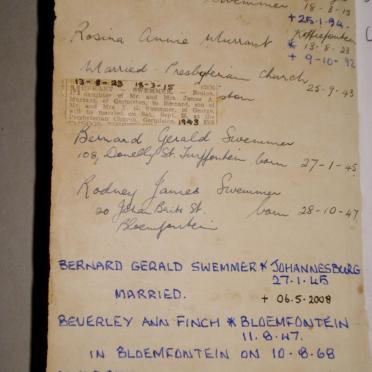 Swemmer 18-3-15
+ 25-1-94.
Koffiefontein
Rosina Annie Murrant * 13-8-23
+ 9-10-92
Married Presbyterian Church
25-9-43
13-8-23 18-3-15
MURRANT SWEMMER
daughter of Mr. and Mrs. James
Murrant, of Germiston, to Bernard, son of
Mr. and Mrs. of George,
will be married on Sat., Sept. 25, at the
Presbyterian Church, Germiston. 1943
Bernard Gerald Swemmer
108, Donelly St. Turffontein born 27-1-45
Rodney James Swemmer
20 Johan Brits St. born 28-10-47
Bloemfontein
BERNARD GERALD SWEMMER * JOHANNESBURG
27.1.45
MARRIED. + 06.5.2008
BEVERLEY ANN FINCH * BLOEMFONTEIN
11.8.47.
IN BLOEMFONTEIN ON 10-8-68